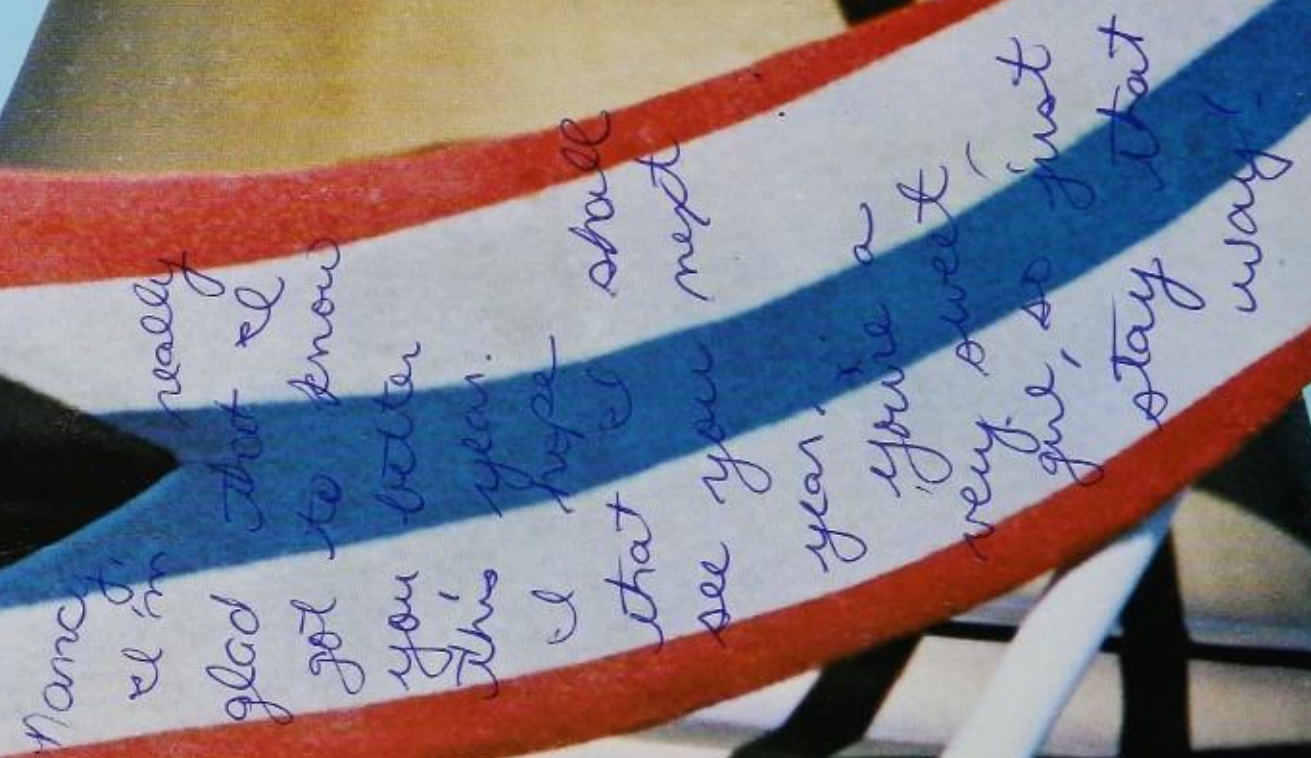 Nancy,
I'm really
glad that I
got to know
you better
this year.
I hope
that I shall
see you next
year, 
you're a
very sweet
girl, so just
stay that
way!